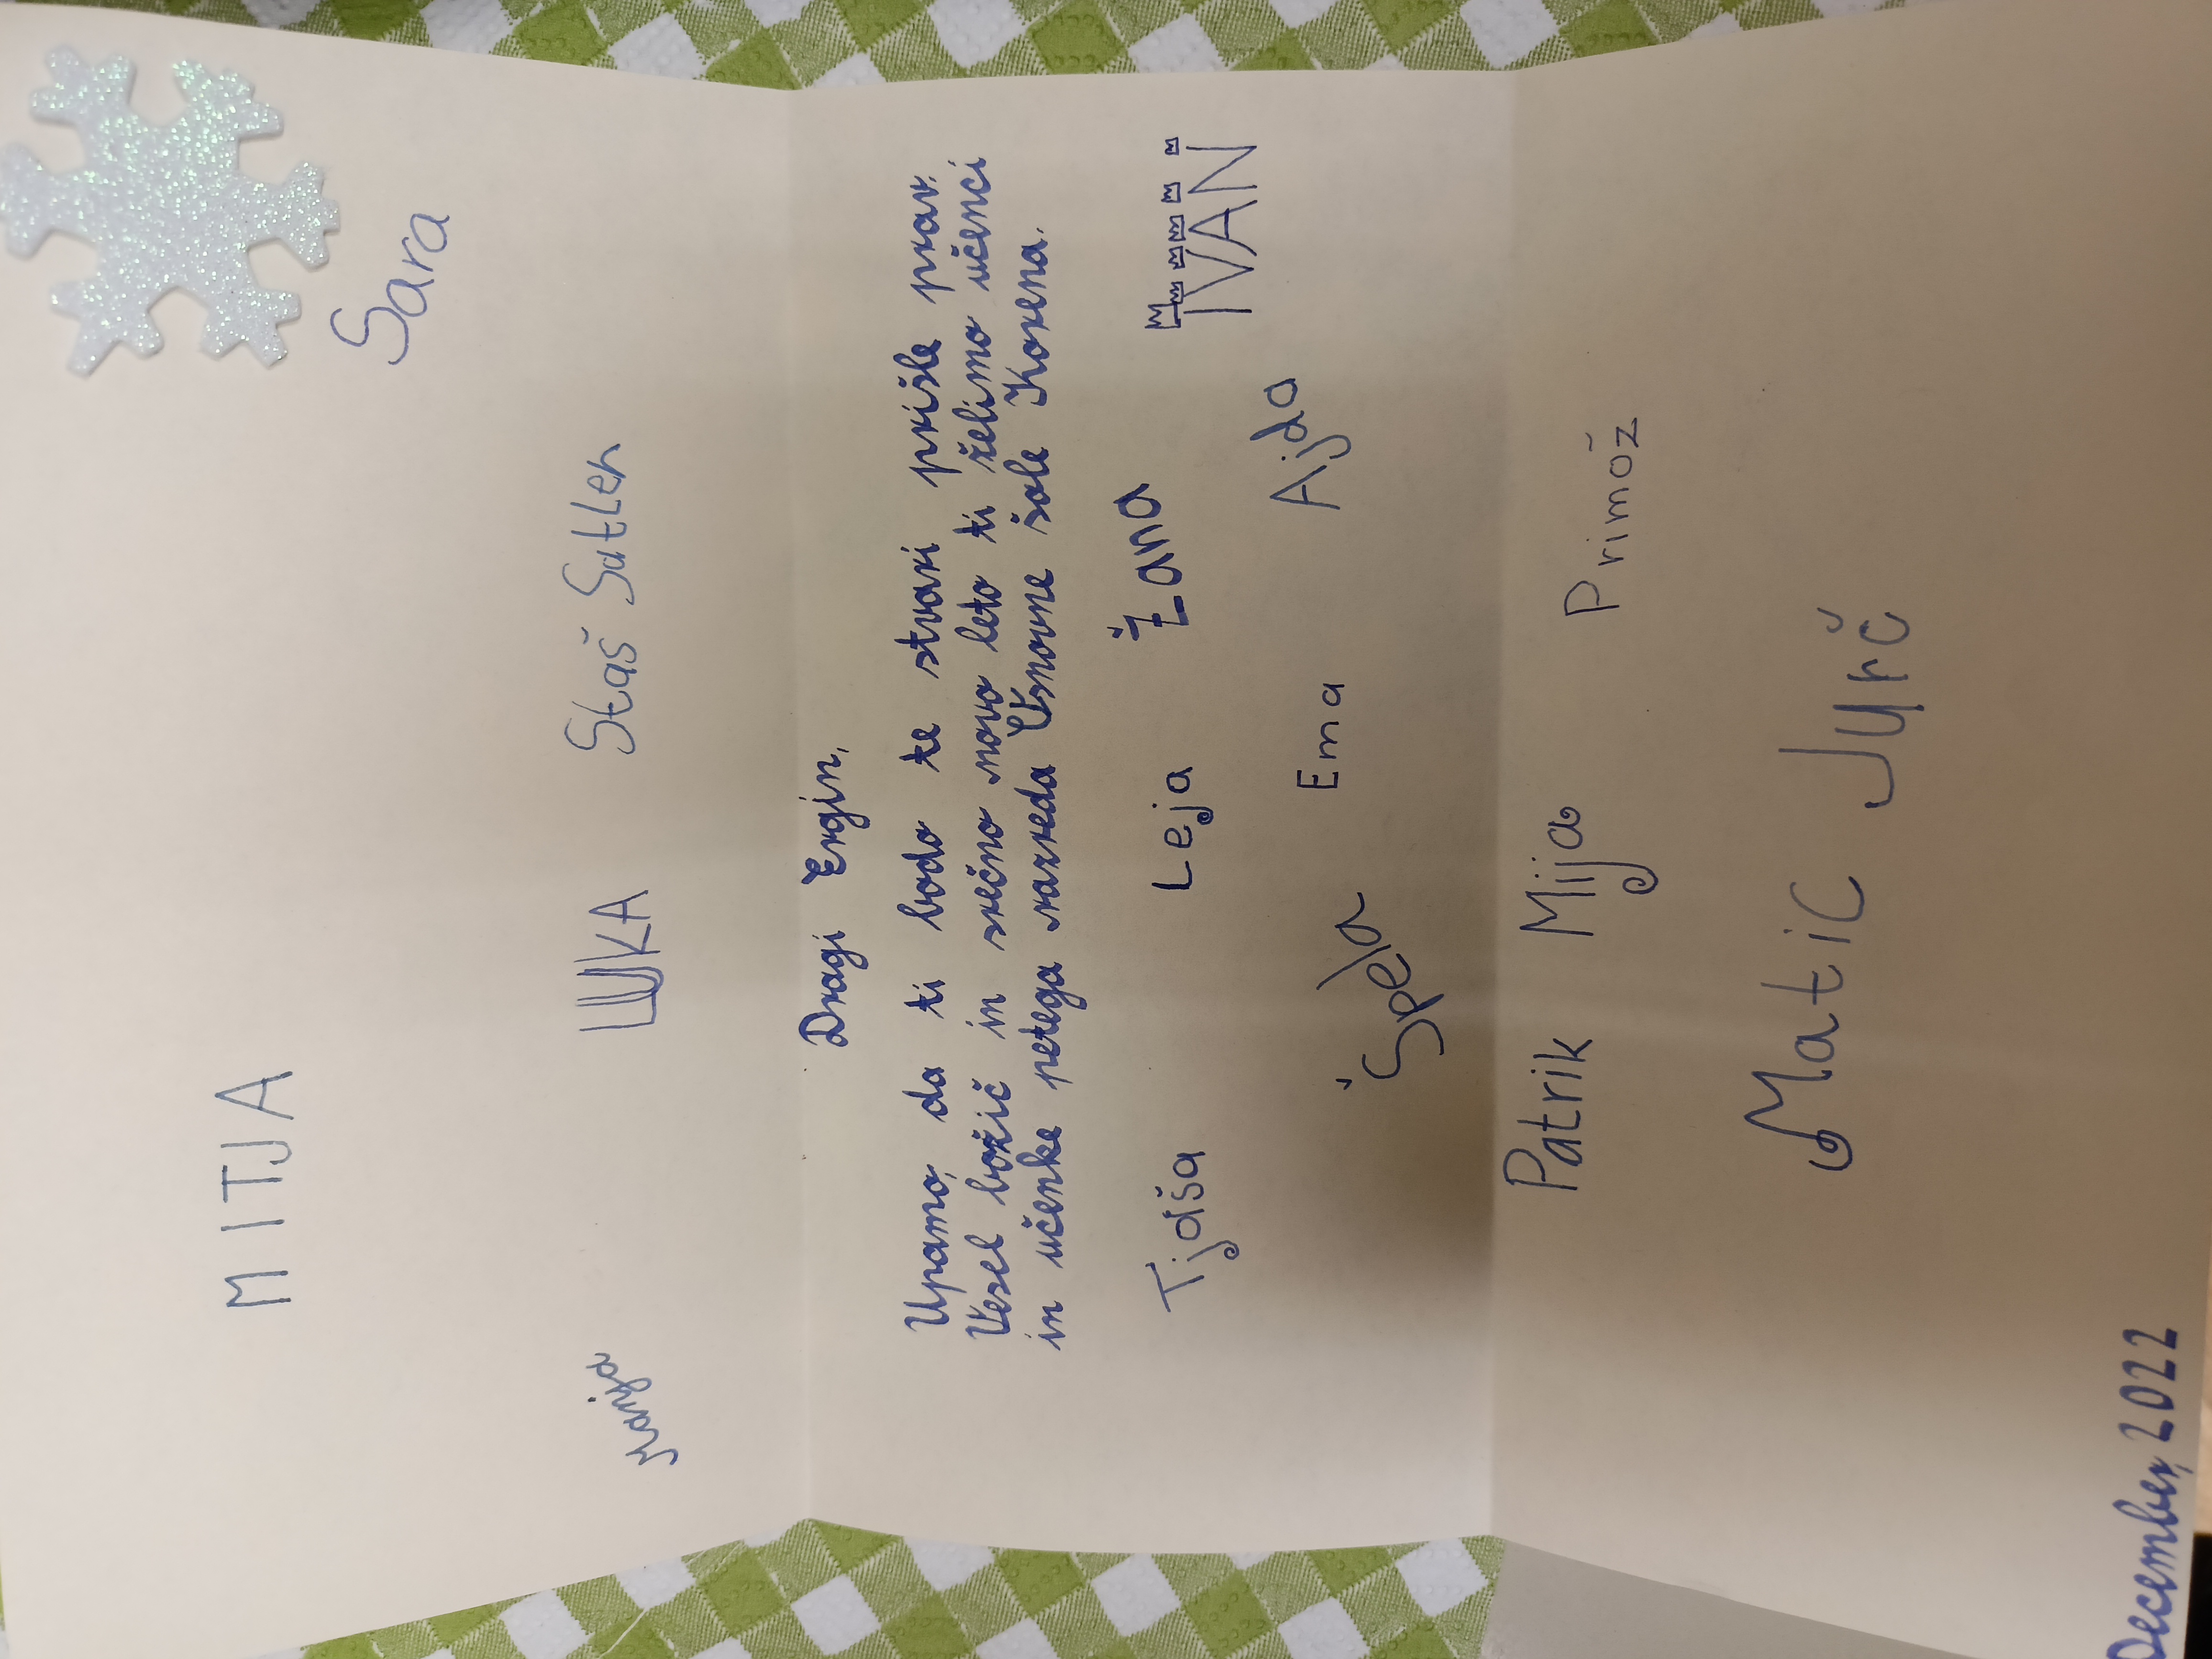 Sara
MITJA
Maja LUKA Staš Satler
Dragi Ergin,
Upamo, da ti bodo te stvari prišle prav.
Vesel božič in srečno novo leto ti želimo učenci
in učenke petega razreda Osnovne šole Korena.
Tjaša Leja Žana IVAN
Špela Ema Ajda
Patrik Mija Primož
Matic Jurč
December, 2022